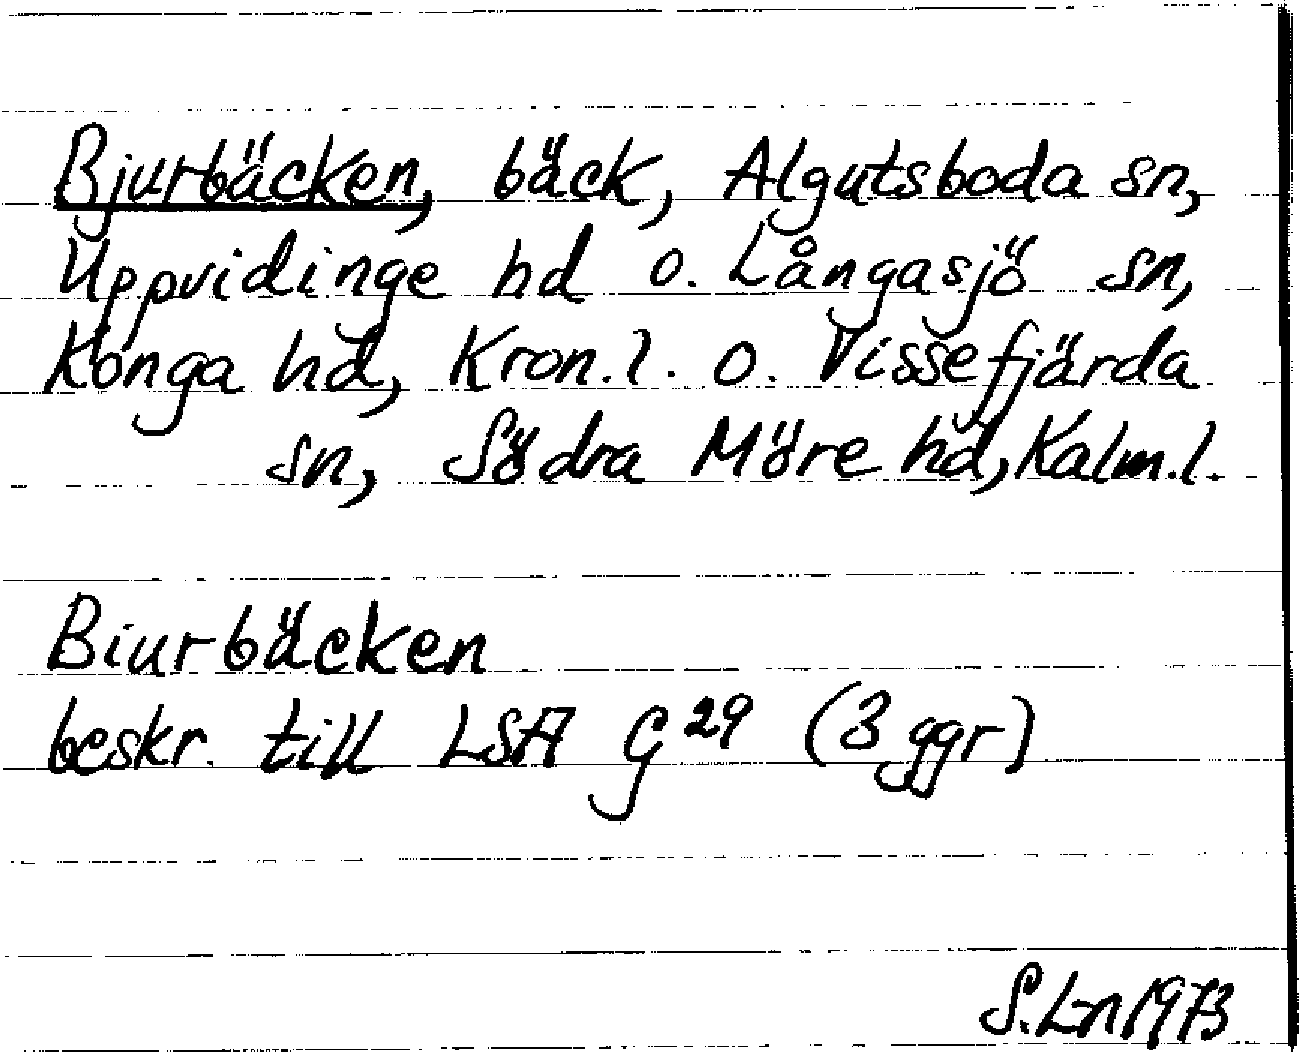 Bjurbäcken, bäck, Algutsboda sn,
Uppvidinge hd o. Långasjö sn,
Konga hd, Kron.l. o. Vissefjärda
sn, Södra Möre hd, Kalm.l.
Biurbäcken
beskr. till LSA G 29 (3 ggr)
S.Ln 1973